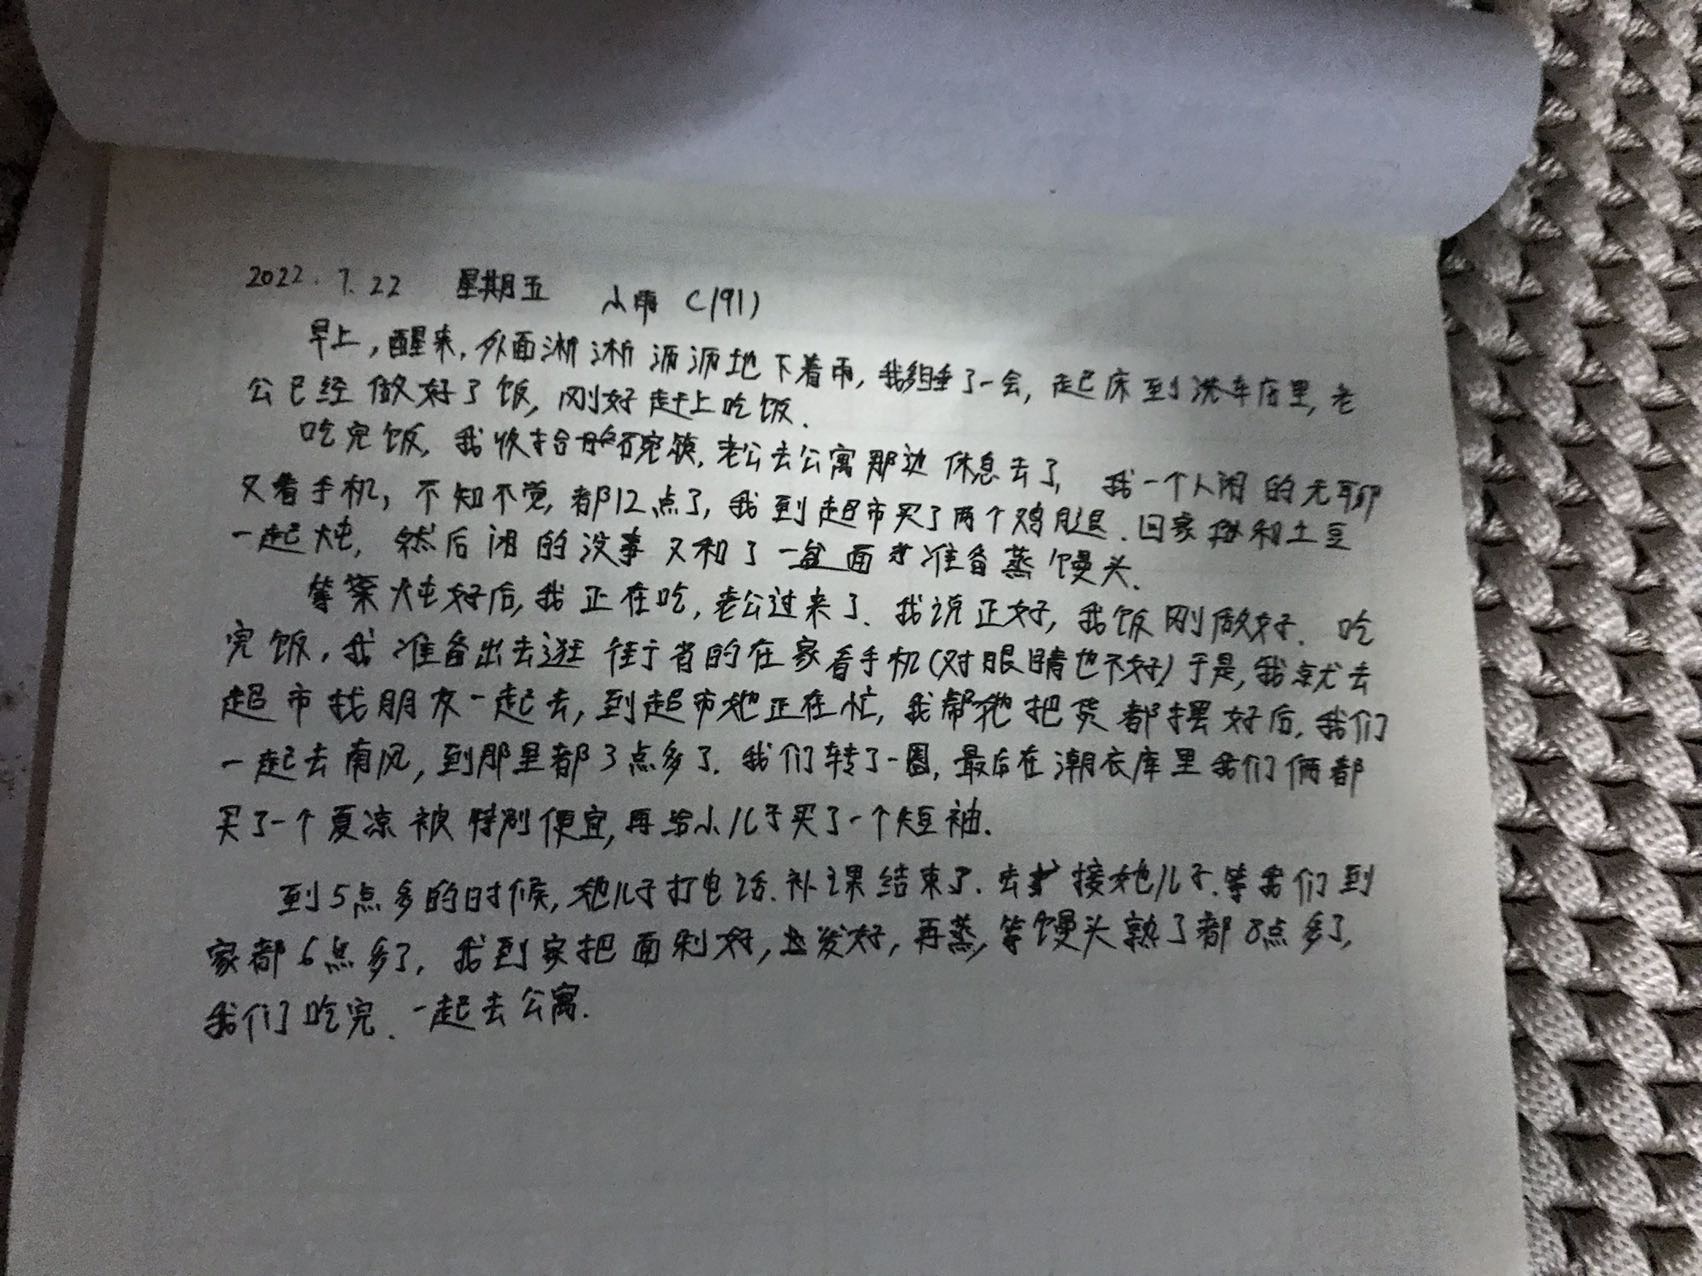 2022.7.22 星期五 小雨 (191)
早上，醒来，外面淅淅沥沥地下着雨，我多睡了一会，起床到洗车店里，老
公已经做好了饭，刚好赶上吃饭．
吃完饭，我收拾碗筷，老公去公寓那边休息去了，我一个人闲的无聊
又看手机，不知不觉，都12点了，我到超市买了两个鸡腿．回家和土豆
一起炖，然后闲的没事又和了一盆面准备蒸馒头．
等菜炖好后，我正在吃，老公过来了．我说正好，我饭刚做好．吃
完饭，我准备出去逛街省的在家看手机(对眼睛也不好)于是，我就去
超市找朋友一起去，到超市她正在忙，我帮她把货都摆好后，我们
一起去南风，到那里都3点多了．我们转了一圈，最后在潮衣库里我们俩都
买了一个夏凉被特别便宜，再给小儿子买了一个短袖．
到5点多的时候，她儿子打电话．补课结束了．去接她儿子．等我们到
家都6点多了，我到家把面剁好，发好，再蒸，等馒头熟了都8点多了，
我们吃完．一起去公寓．